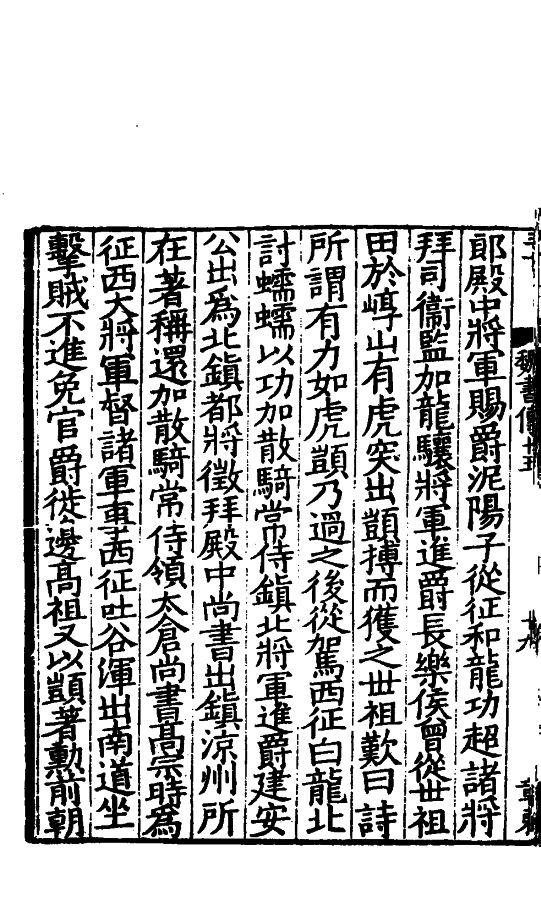 魏書傳十五
十九
郎殿中將軍賜爵泥陽子從征和龍功超諸將
拜司衞監加龍驤將軍進爵長樂侯曾從世祖
田於崞山有虎突出顗搏而獲之世祖歎曰詩
所謂有力如虎顗乃過之後從駕西征白龍北
討蠕蠕以功加散騎常侍鎮北將軍進爵建安
公出爲北鎮都將徵拜殿中尚書出鎮涼州所
在著稱還加散騎常侍領太倉尚書髙宗時爲
征西大將軍督諸軍事西征吐谷渾出南道坐
擊賊不進免官爵徙邊髙祖又以顗著勲前朝